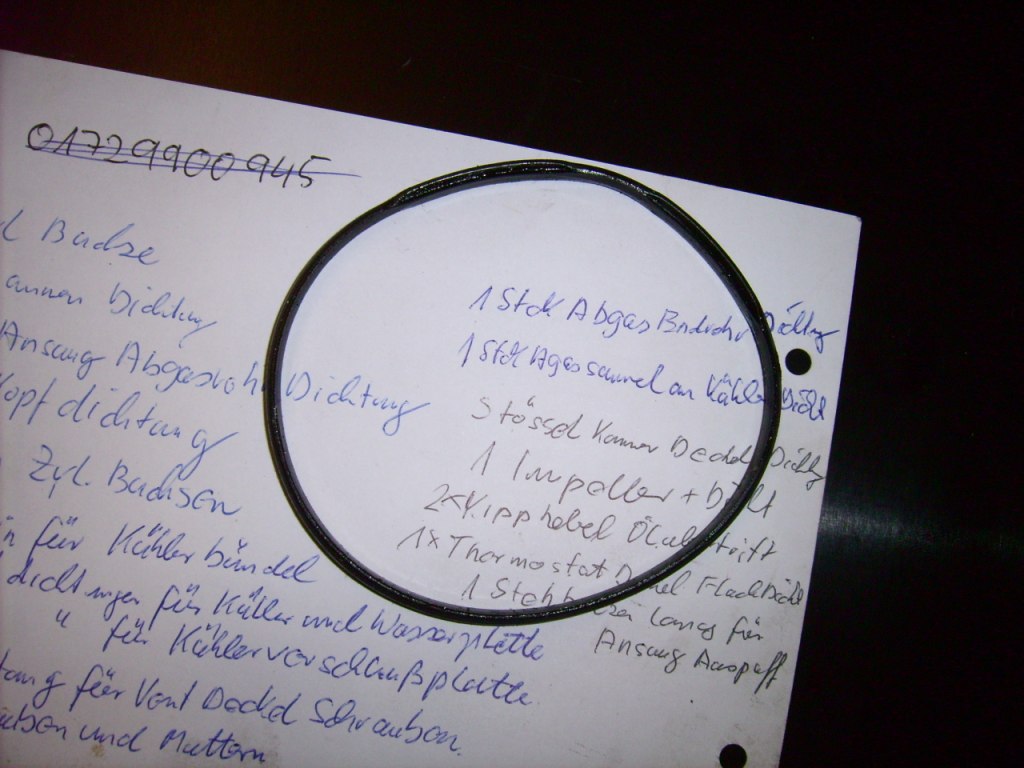 01729900945
Buchse
Dichtung
Ansaug Abgasrohr Dichtung
kopfdichtung
Zyl. Buchsen
für Kühlerbündel
dichtungen für Kühler und Wasserplatte
" für Kühlerverschlußplatte
für Vent Deckel Schrauben
und Muttern
1 Stck Abgas Dichtg
1 Stck Kühler Dicht
Stössel Kammer Deckel Dichtg
1 Impeller + Dicht
2x Kipphebel
1x Thermostat Flach Dicht
1 Steh lang für
Ansaug Auspuff